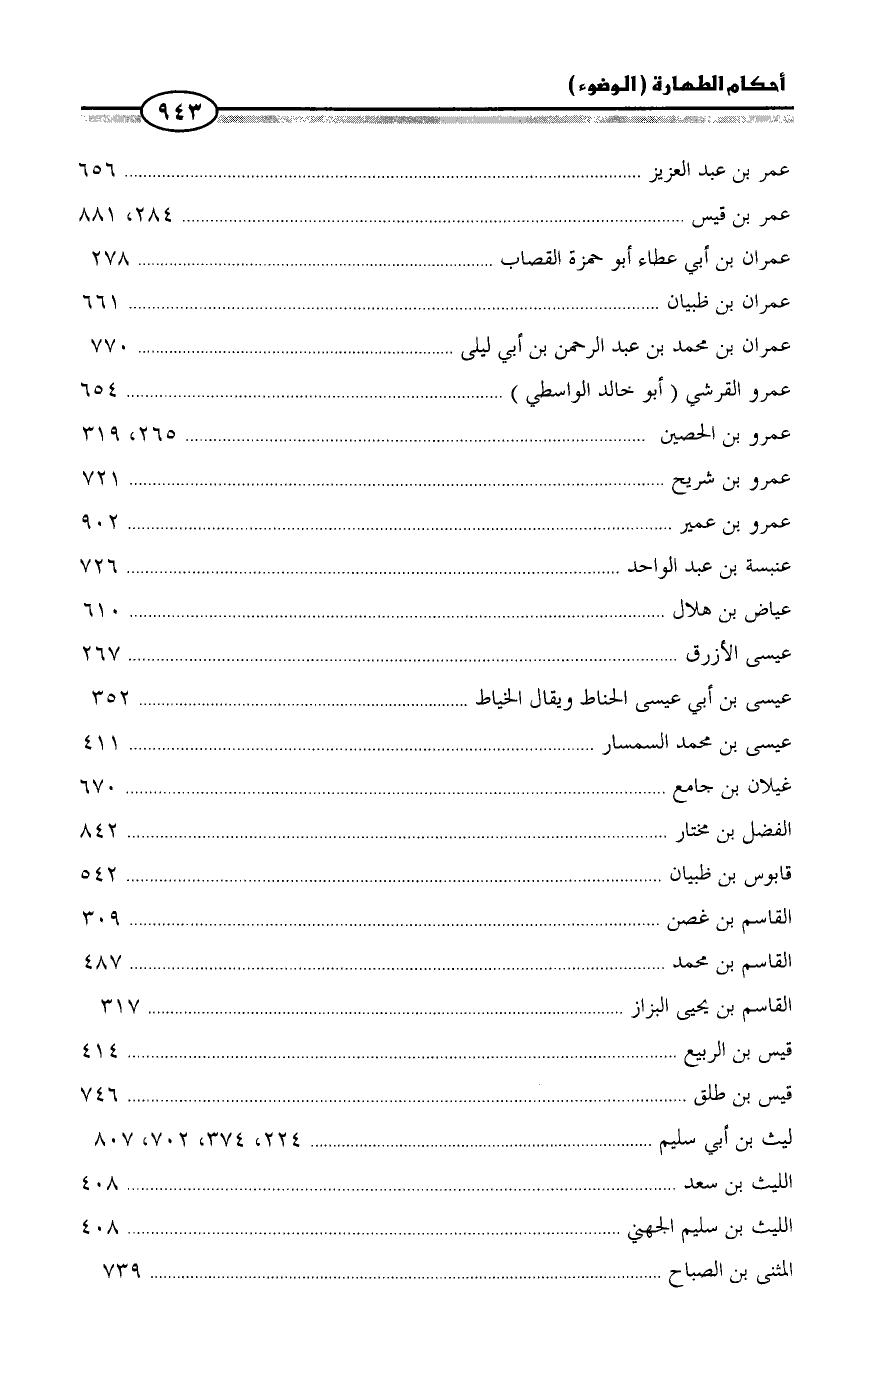 أحكام الطهارة (الوضوء)
٩٤٣
عمر بن عبد العزيز ........ ٦٥٦
عمر بن قيس ........ ٢٨٤، ٨٨١
عمران بن أبي عطاء أبو حمزة القصاب ........ ٢٧٨
عمران بن ظبيان ........ ٦٦١
عمران بن محمد بن عبد الرحمن بن أبي ليلى ........ ٧٧٠
عمرو القرشي ( أبو خالد الواسطي ) ........ ٦٥٤
عمرو بن الحصين ........ ٢٦٥، ٣١٩
عمرو بن شريح ........ ٧٢١
عمرو بن عمير ........ ٩٠٢
عنبسة بن عبد الواحد ........ ٧٢٦
عياض بن هلال ........ ٦١٠
عيسى الأزرق ........ ٢٦٧
عيسى بن أبي عيسى الحناط ويقال الخياط ........ ٣٥٢
عيسى بن محمد السمسار ........ ٤١١
غيلان بن جامع ........ ٦٧٠
الفضل بن مختار ........ ٨٤٢
قابوس بن ظبيان ........ ٥٤٢
القاسم بن غصن ........ ٣٠٩
القاسم بن محمد ........ ٤٨٧
القاسم بن يحيى البزاز ........ ٣١٧
قيس بن الربيع ........ ٤١٤
قيس بن طلق ........ ٧٤٦
ليث بن أبي سليم ........ ٢٢٤، ٣٧٤، ٧٠٢، ٨٠٧
الليث بن سعد ........ ٤٠٨
الليث بن سليم الجهني ........ ٤٠٨
المثنى بن الصباح ........ ٧٣٩